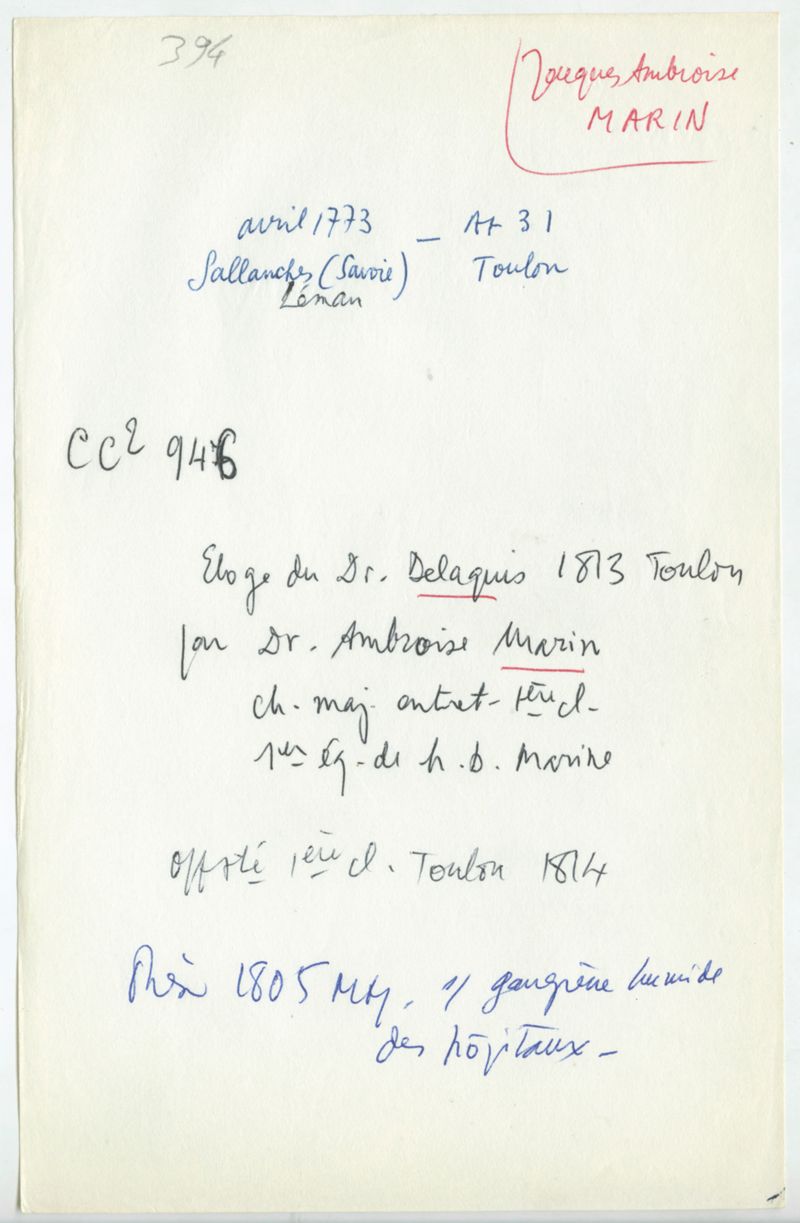 394
Jacques Ambroise
MARIN
avril 1773 – At 31
Sallanches (Savoie) Toulon
Léman
CC2 946
Eloge du Dr. Delaquis 1813 Toulon
par Dr. Ambroise Marin
ch. maj. entret- 1ère cl-
1er ég. de h. d. Marine
offsté 1ère cl. Toulon 1814
Thèse 1805 s/ gangrène humide
des hôpitaux –